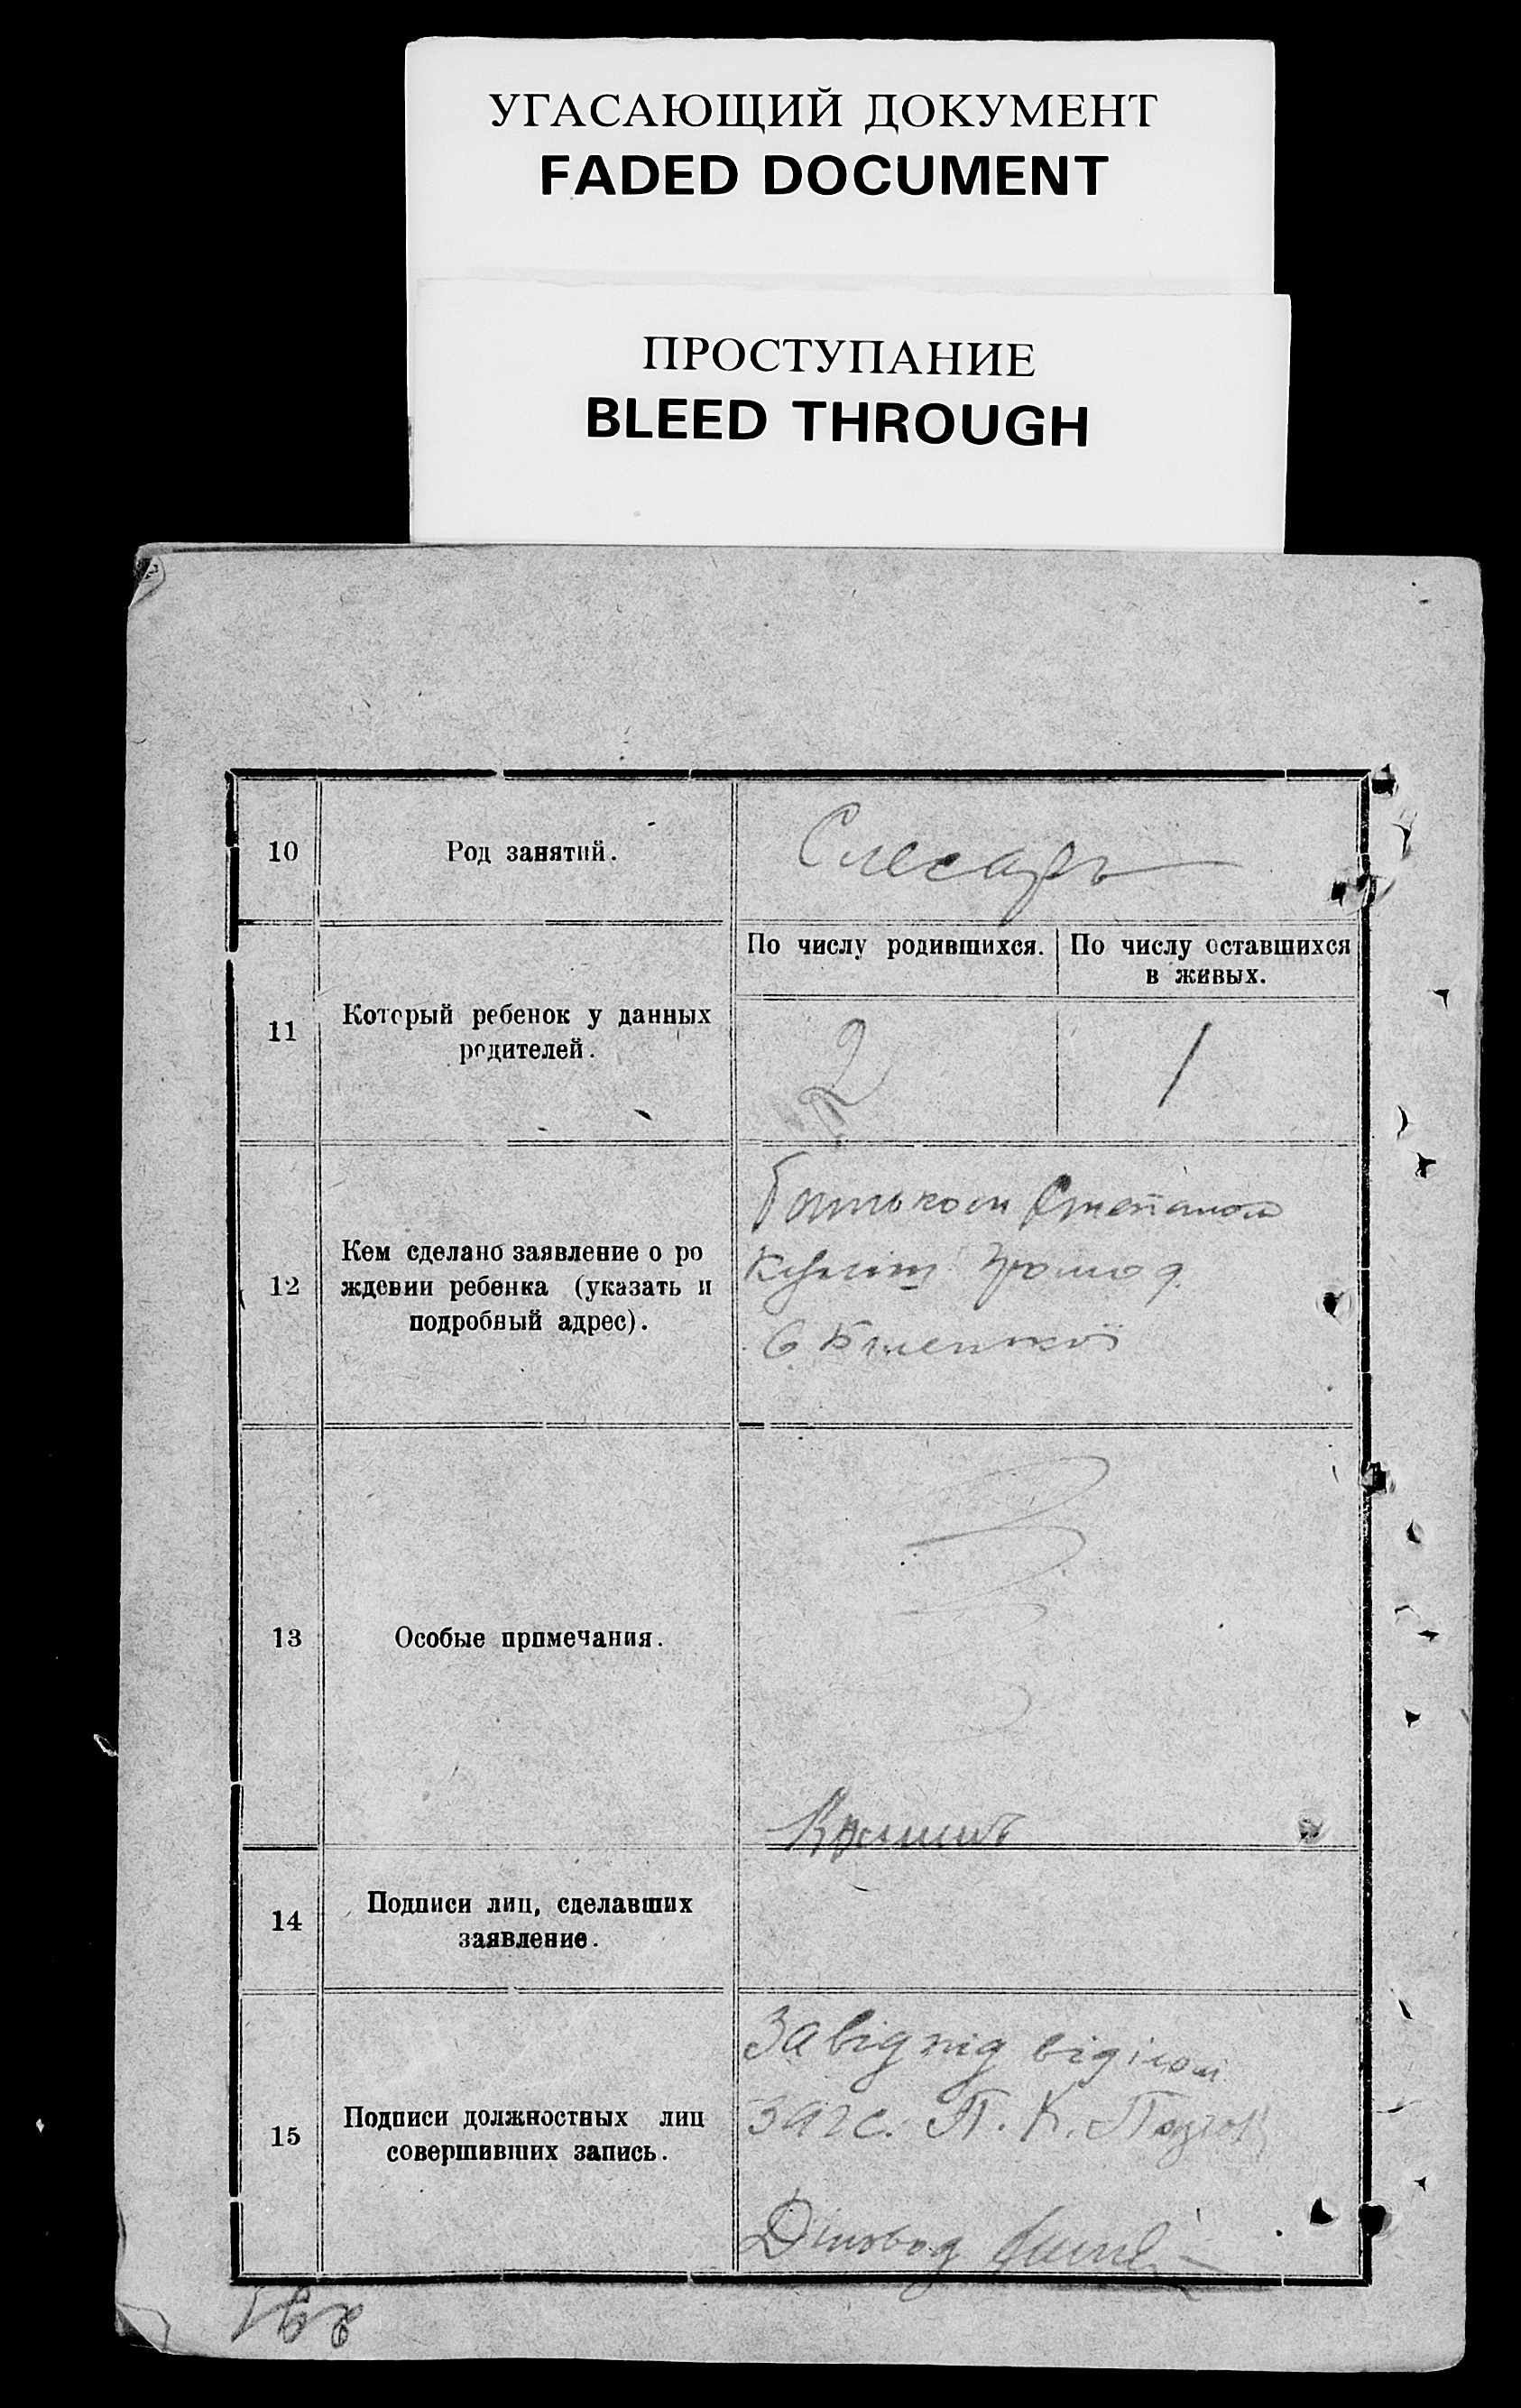 УГАСАЮЩИЙ ДОКУМЕНТ
FADED DOCUMENT
ПРОСТУПАНИЕ
BLEED THROUGH
10
Род занятий.
Слесарь
11
Который ребенок у данных
родителей.
По числу родившихся.
По числу оставшихся
в живых.
2
1
12
Кем сделано заявление о ро
ждении ребенка (указать и
подробный адрес).
Батьком Степаном
13
Особые примечания.
14
Подписи лиц, сделавших
заявление.
15
Подписи должностных лиц
совершивших запись.
Завід під відділом
Загс. П. К.
Діловод